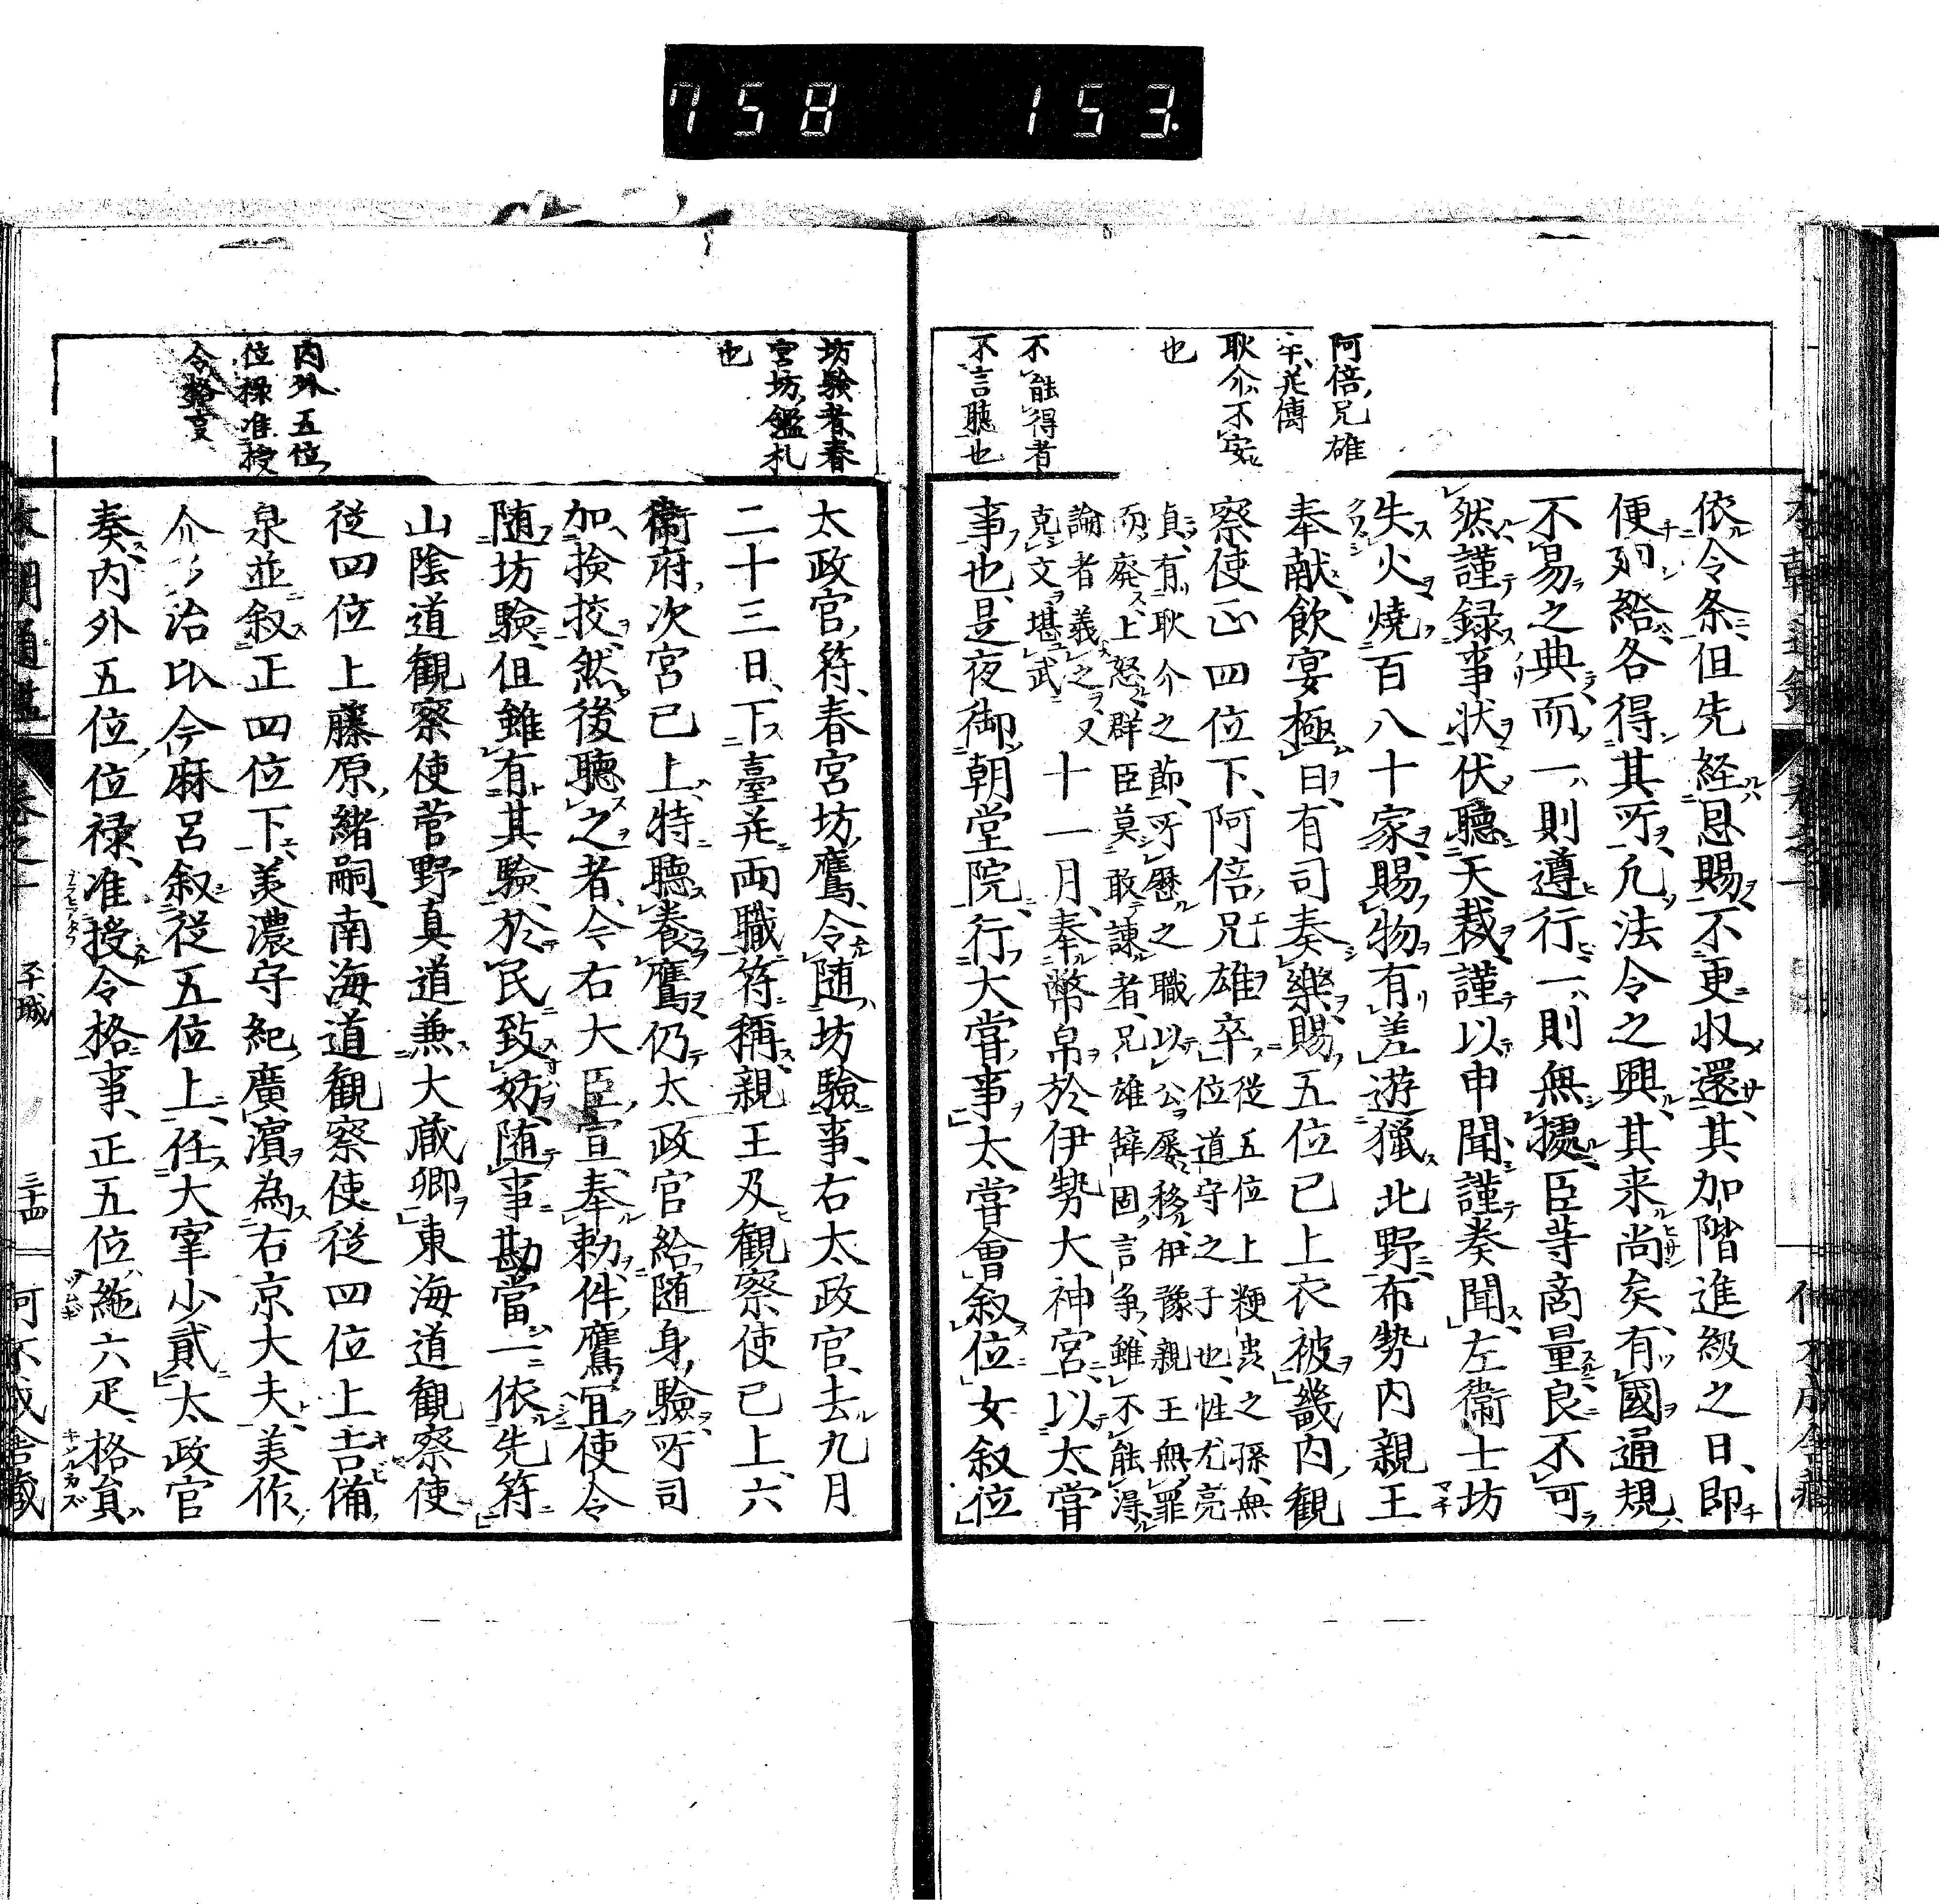 758 153.
阿倍兄雄
卒并傳
耿介不安
也
不能得者
不言聽也
依令条但先経恩賜不更収還其加階進級之日即
便列給各得其所凢法令之興其来尚矣有國通規
不易之典而一則遵行一則無據臣等商量良不可
然謹録事状伏聴天裁謹以申聞謹奏聞左衞士坊
失火燒百八十家賜物有差遊獵北野布勢内親王
奉献飲宴極日有司奏樂賜五位已上衣被畿内觀
察使正四位下阿倍兄雄卒從五位上粳虫之孫無
位道守之子也性尤亮
貞有耿介之節所歷之職以公廉移伊豫親王無罪
而廢上怒群臣莫敢諫者兄雄辭固言爭雖不能得
論者義之又
克文堪武
十一月奉幣帛於伊勢大神宮以太嘗
事也是夜御朝堂院行大嘗事太嘗會叙位女叙位
坊驗者春
宮坊鑑札
也
内外五位
位禄准授
令格事
太政官符春宮坊鷹令随坊驗事右太政官去九月
二十三日下臺并両職符稱親王及觀察使已上六
衞府次宮已上特聽養鷹仍太政官給随身驗所司
加撿挍然後聽之者今右大臣宣奉勅件鷹宜使令
随坊驗但雖有其驗於民致妨随事勘當一依先符
山陰道觀察使菅野真道兼大蔵卿東海道觀察使
従四位上藤原緒嗣南海道觀察使従四位上吉備
泉並叙正四位下美濃守紀廣濱為右京大夫美作
介多治比今麻呂叙従五位上任大宰少貳太政官
奏内外五位位禄准授令格事正五位絁六疋格員
平城
三十四